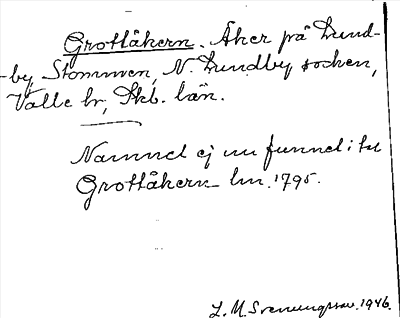 Grottåkern. Åker på Lund-
-by Stommen, N. Lundby socken,
Valle hr, Skb. län.
Namnet ej nu funnet i tal
Grottåkern lm. 1795.
L. M. Svenungsson. 1946.